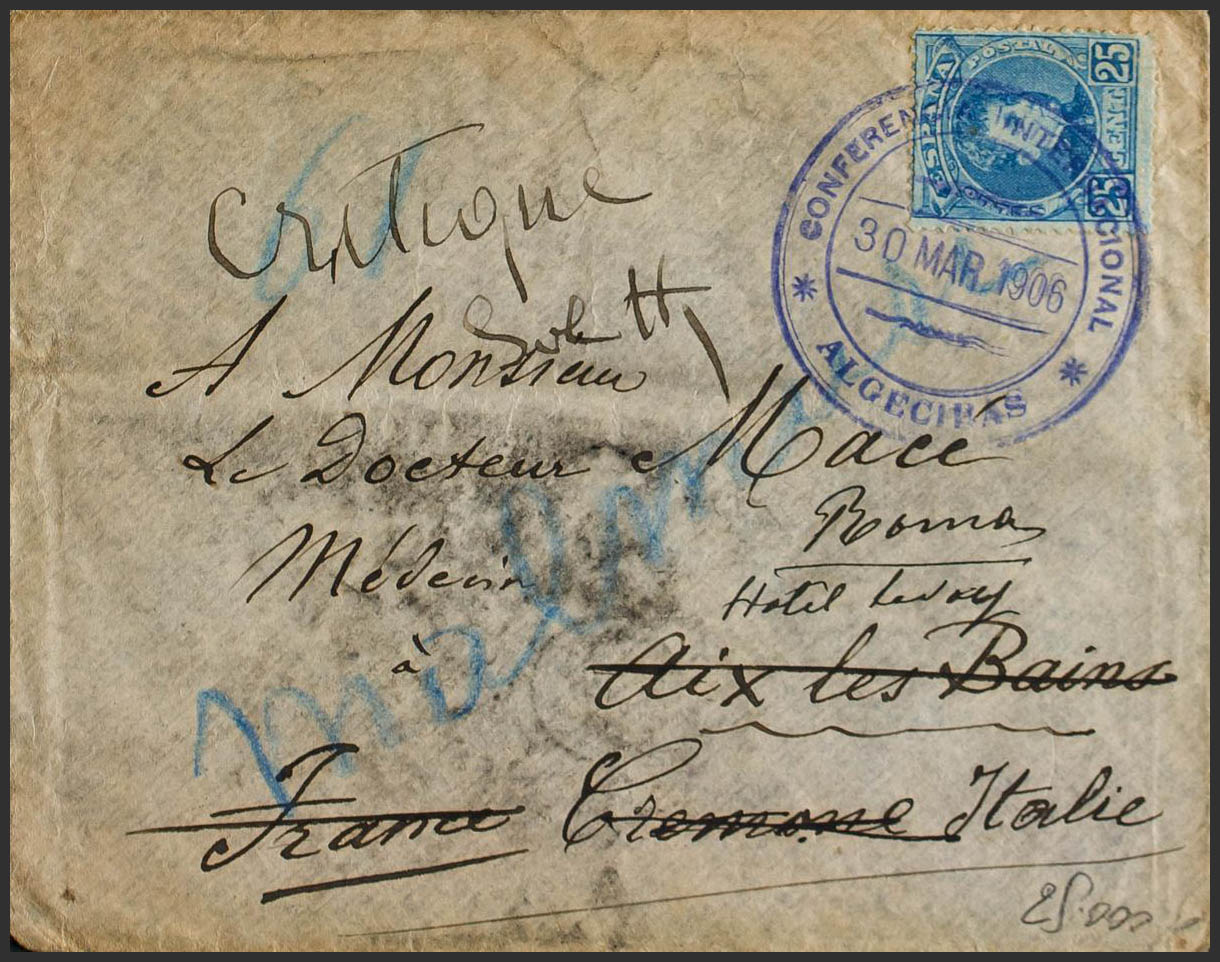 ESPAÑA
POSTAL
25
CENT
25
CONFERENCIA INTERNACIONAL
30 MAR 1906
* ALGECIRAS *
Critique
A Monsieur
Le Docteur Macé
Médecin
Roma
Hotel
à Aix les Bains
France Cremone Italie
25.000